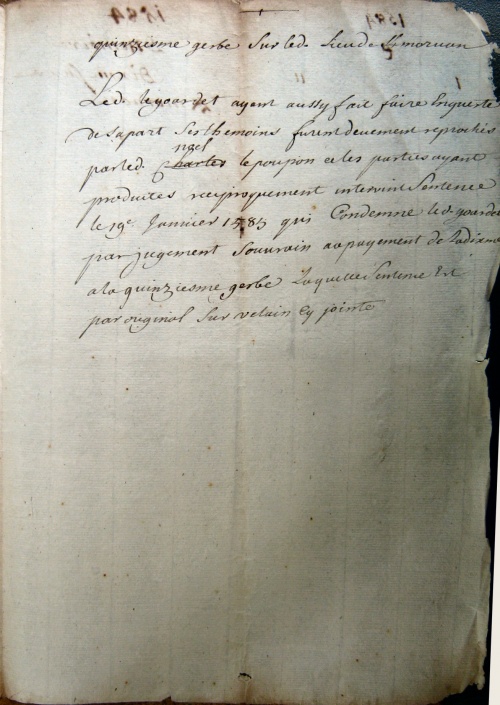 quinziesme gerbe Sur led. Lieu de
Led. legourdet ayent aussy fait faire Enqueste
de sa part Ses themoins furent deuement reprochés
par led. noel le poupon et les parties ayant
produites reciproquement intervint Sentence
le 19e Janvier 1585 qui Condemne led. gourdet
par jugement Souvrain au payement de la dixme
a la quinziesme gerbe Laquelle Sentence Est
par original Sur velain Cy jointe